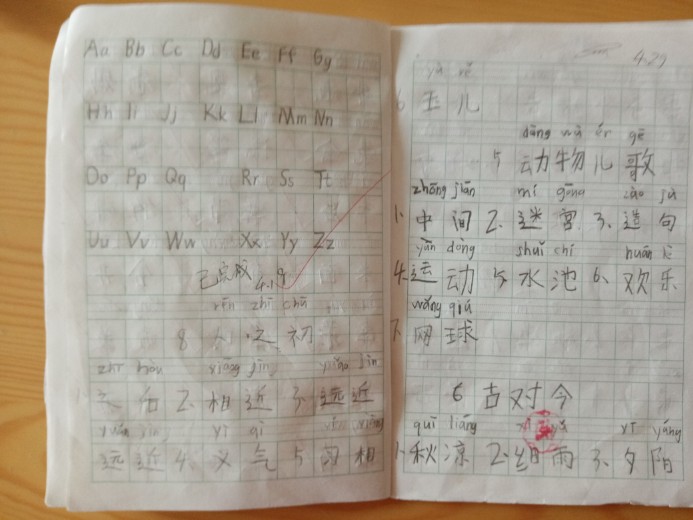 Aa Bb Cc Dd Ee Ff Gg
Hh Ii Jj Kk Ll Mm Nn
Oo Pp Qq Rr Ss Tt
Uu Vv Ww Xx Yy Zz
已完成
8 人之初
2. 相近 3. 远近
远近 4. 义气 5
4.29
6 玉儿
dōng wù ér gē
5 动物儿歌
zhōng jiān mí gōng zào jù
1. 中间 2. 迷宫 3. 造句
yùn dòng shuǐ chí huān lè
4. 运动 5. 水池 6. 欢乐
wǎng qiú
7. 网球
6 古对今
qiū liáng xī yáng
1. 秋凉 2. 细雨 3. 夕阳